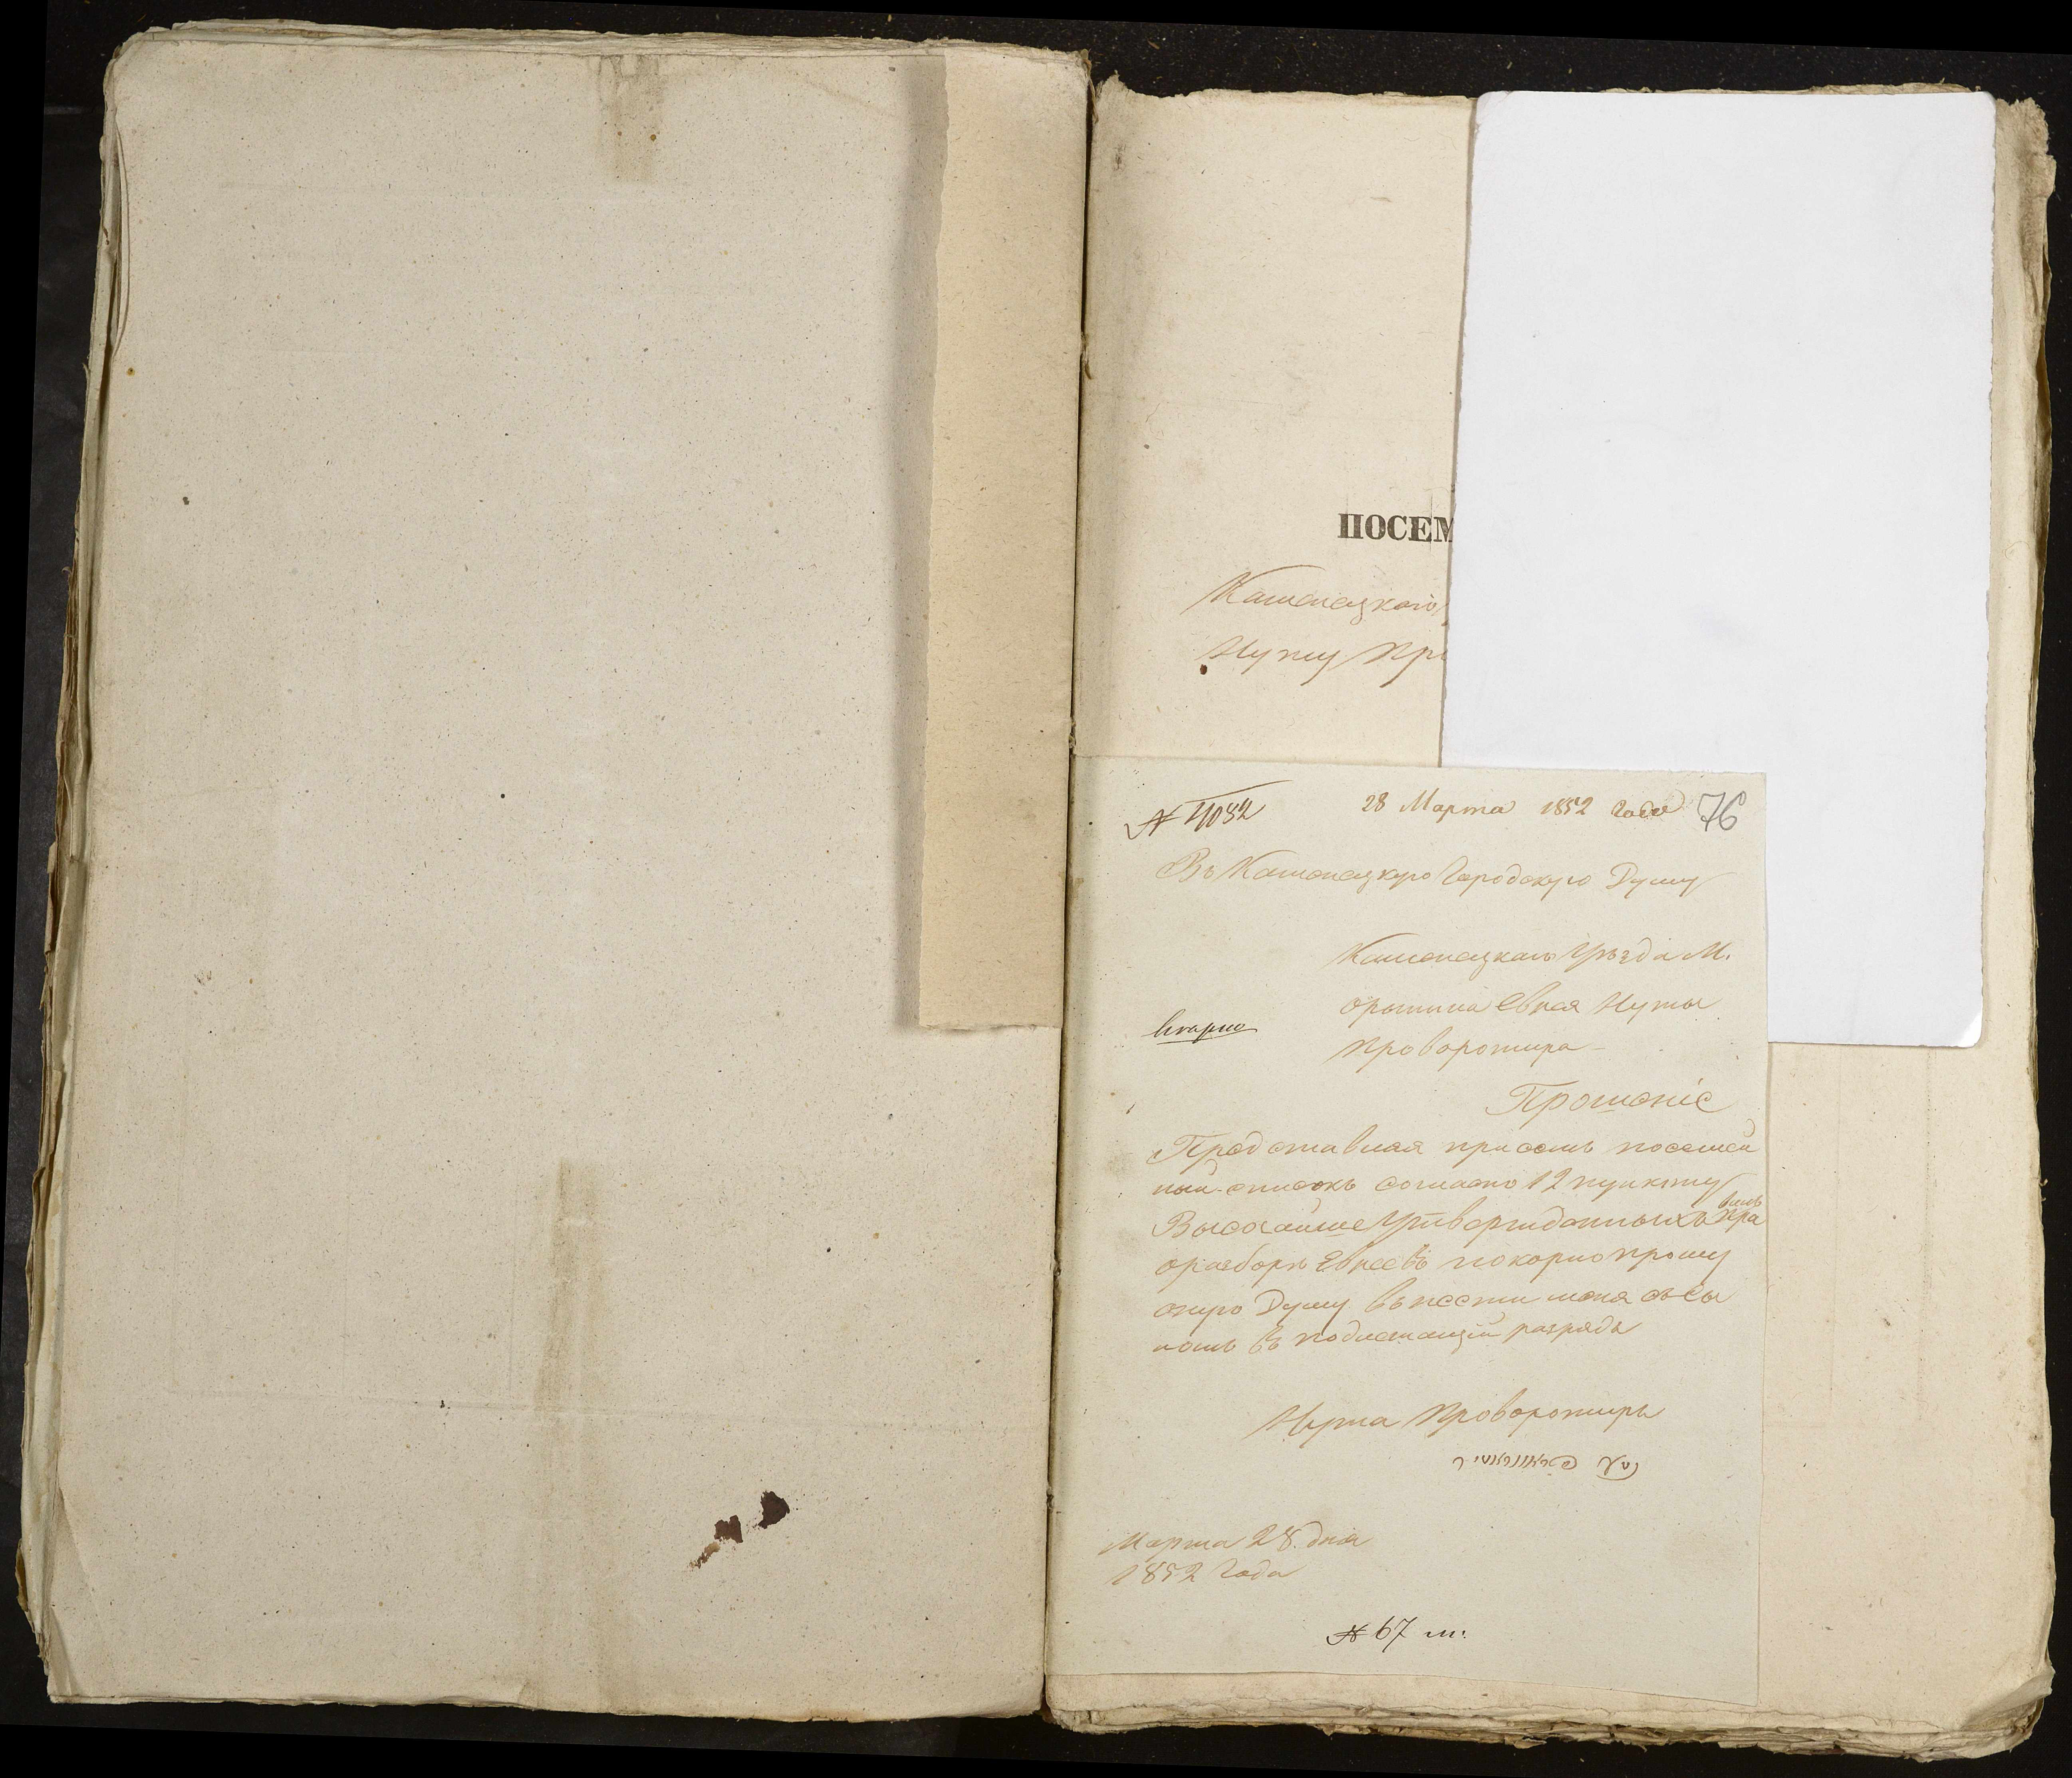 ПОСЕМ
Каменецкаго
Нуты Про
№ 4082 28 Марта 1852 года 76
Въ Каменецкую Городскую Думу
Каменецкаго Уѣзда М.
Орынина Еврея Нуты
Проворотира
Прошеніе
Представляя присемъ посемей
ный списокъ согласно 12 пункту
Высочайше Утвержденныхъ Пра
вилъ
о разборѣ Евреевъ покорно прошу
оную Думу внести меня съ сы
номъ въ подлежащій разрядъ
Нута Проворотиръ
Марта 28. дня
1852 Года
№ 67 м.